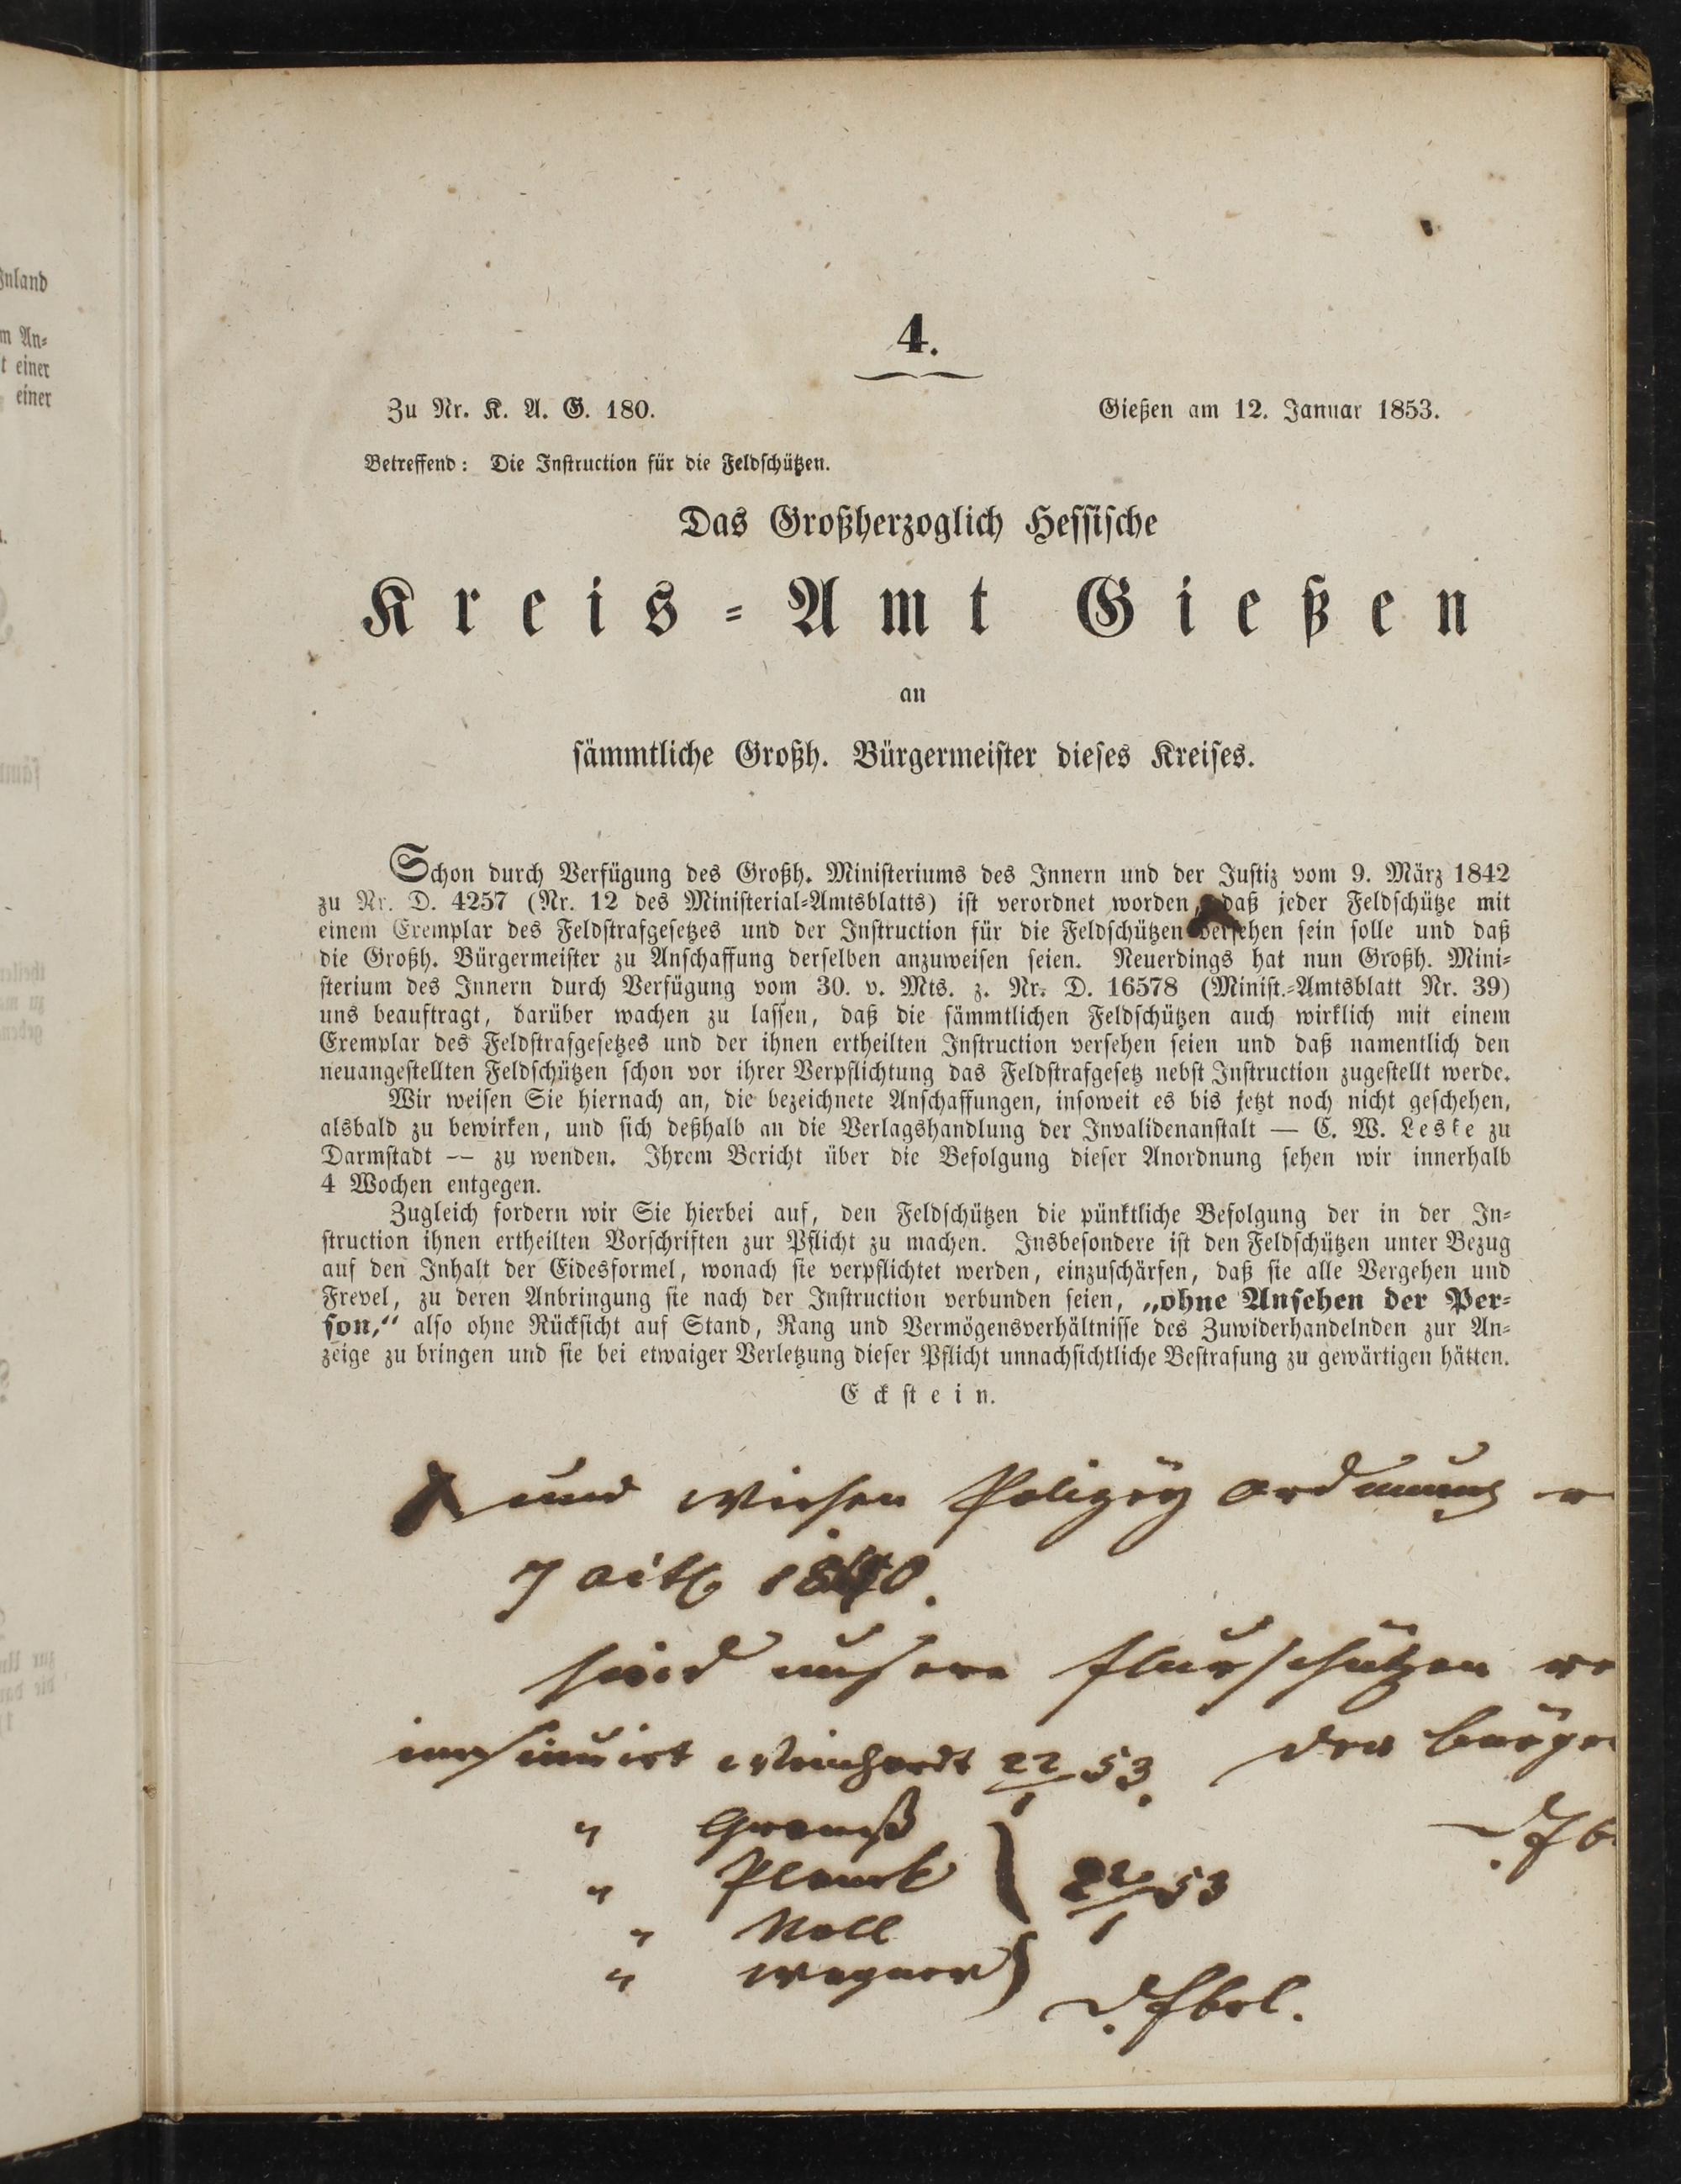 Inland
m An-
t einer
einer
4.
Zu Nr. K. A. G. 180.
Gießen am 12. Januar 1853.
Betreffend: Die Instruction für die Feldschützen.
Das Großherzoglich Hessische
Kreis-Amt Gießen
an
sämmtliche Großh. Bürgermeister dieses Kreises.
Schon durch Verfügung des Großh. Ministeriums des Innern und der Justiz vom 9. März 1842
zu Nr. D. 4257 (Nr. 12 des Ministerial-Amtsblatts) ist verordnet worden, daß jeder Feldschütze mit
einem Exemplar des Feldstrafgesetzes und der Instruction für die Feldschützen versehen sein solle und daß
die Großh. Bürgermeister zu Anschaffung derselben anzuweisen seien. Neuerdings hat nun Großh. Mini-
sterium des Innern durch Verfügung vom 30. v. Mts. z. Nr. D. 16578 (Minist.-Amtsblatt Nr. 39)
uns beauftragt, darüber wachen zu lassen, daß die sämmtlichen Feldschützen auch wirklich mit einem
Exemplar des Feldstrafgesetzes und der ihnen ertheilten Instruction versehen seien und daß namentlich den
neuangestellten Feldschützen schon vor ihrer Verpflichtung das Feldstrafgesetz nebst Instruction zugestellt werde.
Wir weisen Sie hiernach an, die bezeichnete Anschaffungen, insoweit es bis jetzt noch nicht geschehen,
alsbald zu bewirken, und sich deßhalb an die Verlagshandlung der Invalidenanstalt — C. W. Leske zu
Darmstadt — zu wenden. Ihrem Bericht über die Befolgung dieser Anordnung sehen wir innerhalb
4 Wochen entgegen.
Zugleich fordern wir Sie hierbei auf, den Feldschützen die pünktliche Befolgung der in der In-
struction ihnen ertheilten Vorschriften zur Pflicht zu machen. Insbesondere ist den Feldschützen unter Bezug
auf den Inhalt der Eidesformel, wonach sie verpflichtet werden, einzuschärfen, daß sie alle Vergehen und
Frevel, zu deren Anbringung sie nach der Instruction verbunden seien, „ohne Ansehen der Per-
son,“ also ohne Rücksicht auf Stand, Rang und Vermögensverhältnisse des Zuwiderhandelnden zur An-
zeige zu bringen und sie bei etwaiger Verletzung dieser Pflicht unnachsichtliche Bestrafung zu gewärtigen hätten.
Eckstein.
und Wiesen Polizey Ordnung
7 1840.
sind unsere Flurschützen
insinuirt 22/1 53. der Bürger
"
" 22/1 53
" Noll
" Wagner